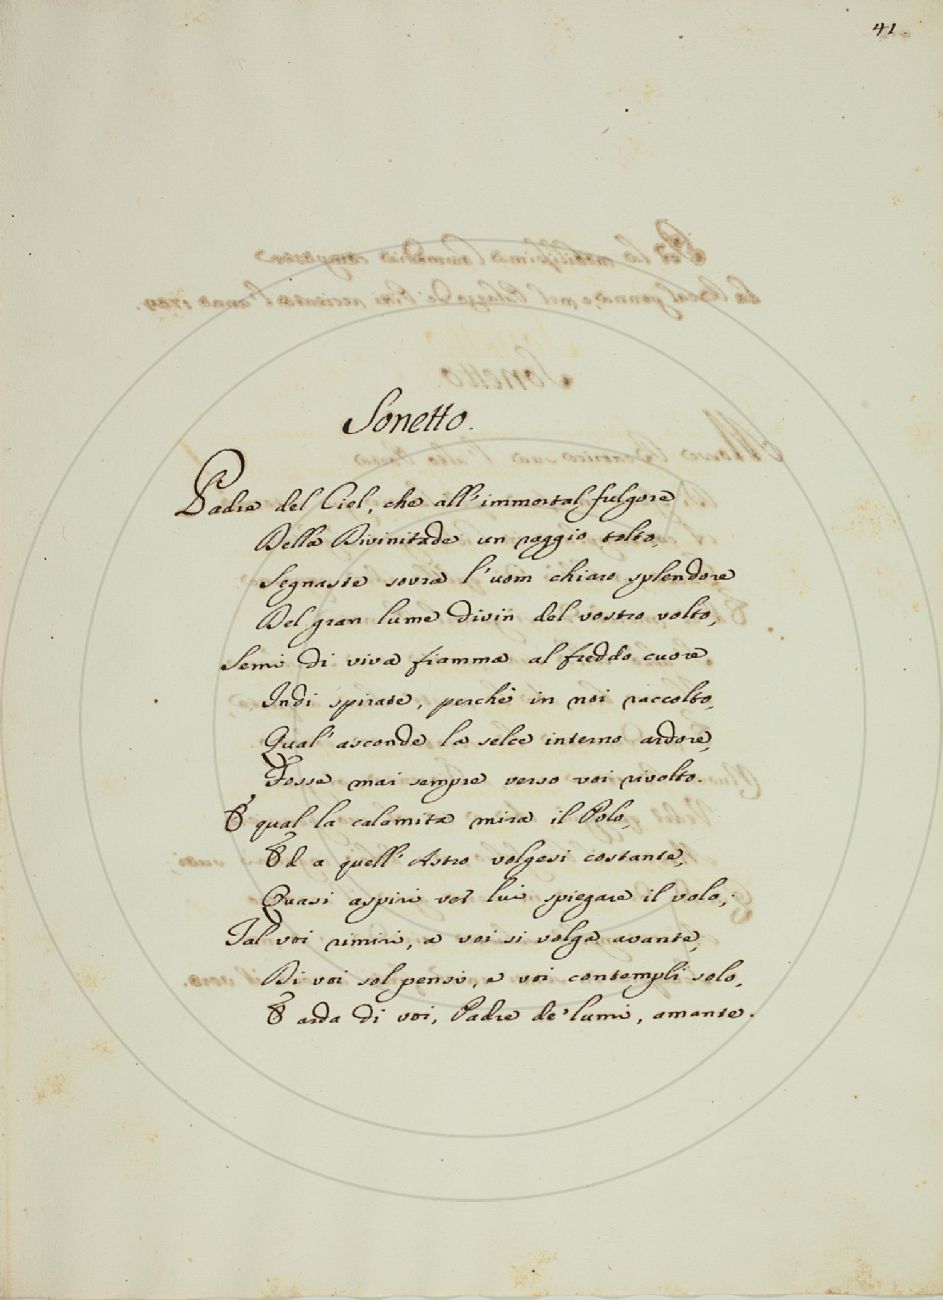 41.
Sonetto.
Padre del Ciel, che all'immortal fulgore
Della Divinitade un raggio tolto,
Segnaste sovra l'uom chiaro splendore
Del gran lume divin del vostro volto,
Semi di viva fiamma al freddo cuore
Indi spirate, perchè in noi raccolto,
Qual' asconde la selce interno ardore,
Fosse mai sempre verso voi rivolto.
E qual la calamita mira il Polo,
Ed a quell'Astro volgesi costante,
Quasi aspiri ver lui spiegare il volo;
Tal voi rimiri, a voi si volga avante,
Di voi sol pensi, e voi contempli solo,
E arda di voi, Padre de' lumi, amante.